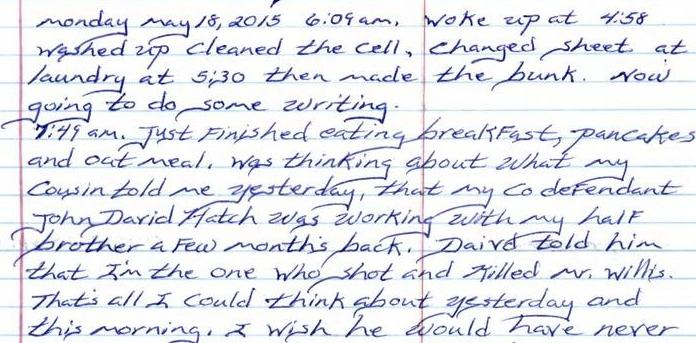 monday may 18, 2015 6:09 am. Woke up at 4:58
washed up cleaned the cell, changed sheet at
laundry at 5;30 then made the bunk. Now
going to do some writing.
7:49 am. Just finished eating breakfast, pancakes
and oat meal. Was thinking about what my
Cousin told me yesterday, that my codefendant
John David Hatch was working with my half
brother a few month's back. Daivd told him
that I'm the one who shot and killed Mr. Willis.
That's all I could think about yesterday and
this morning. I wish he would have never